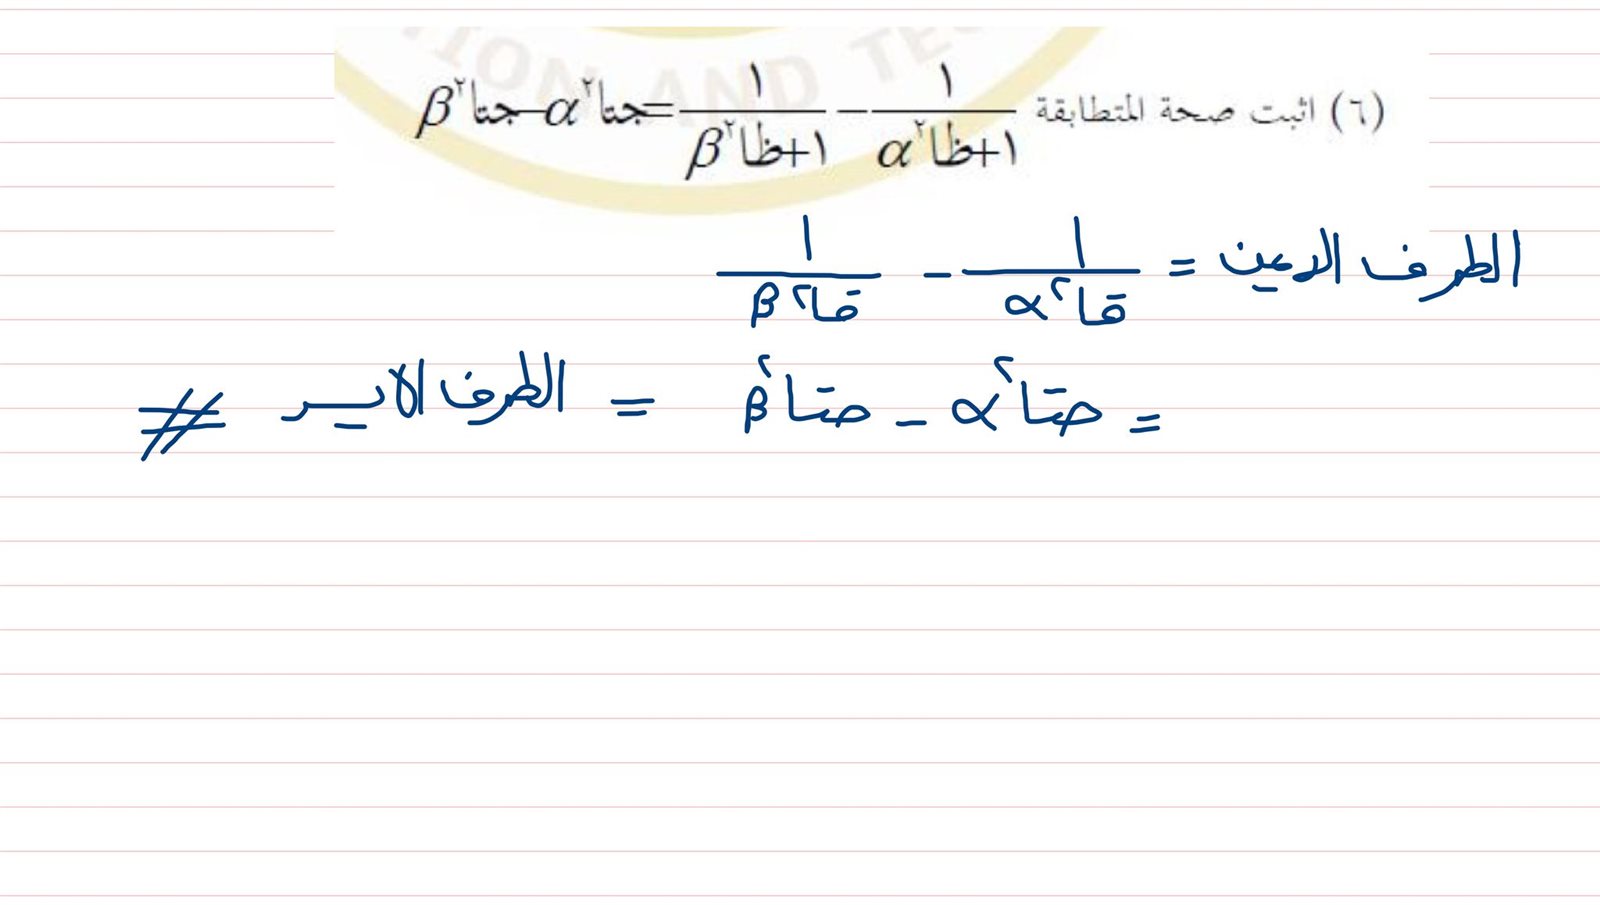 (٦) اثبت صحة المتطابقة ١/(١+ظا٢α) − ١/(١+ظا٢β) = جتا٢α − جتا٢β
الطرف الايمن = ١/(قا٢α) − ١/(قا٢β)
= جتا٢α − جتا٢β = الطرف الايسر #
TION AND TE